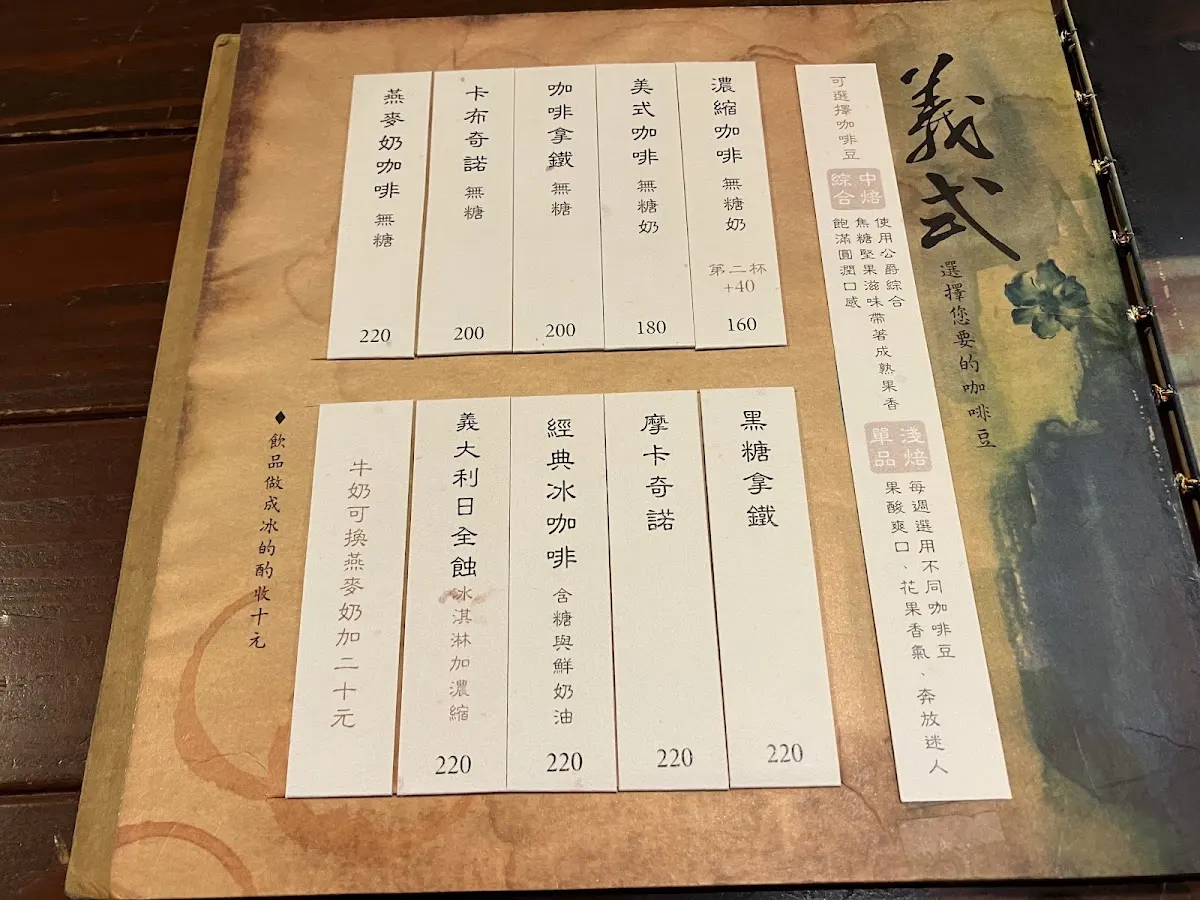 義式
選擇您要的咖啡豆
可選擇咖啡豆
中焙
綜合
使用公爵綜合
焦糖堅果滋味帶著成熟果香
飽滿圓潤口感
淺焙
單品
每週選用不同咖啡豆
果酸爽口、花果香氣、奔放迷人
濃縮咖啡 無糖奶
第二杯
+40
160
美式咖啡 無糖奶
180
咖啡拿鐵 無糖
200
卡布奇諾 無糖
200
燕麥奶咖啡 無糖
220
黑糖拿鐵
220
摩卡奇諾
220
經典冰咖啡 含糖與鮮奶油
220
義大利日全蝕 冰淇淋加濃縮
220
牛奶可換燕麥奶加二十元
♦飲品做成冰的酌收十元